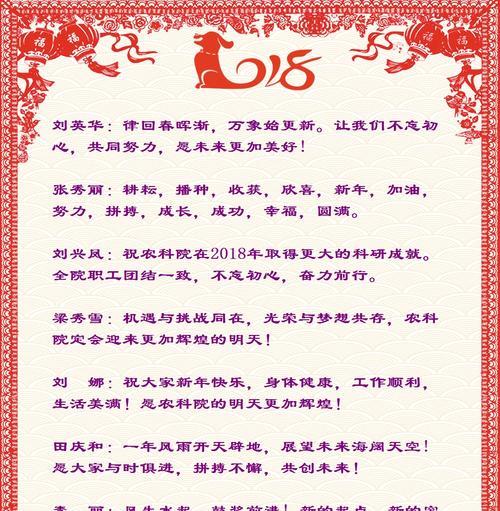 福
福
福
福
2018
刘英华：律回春晖渐，万象始更新。让我们不忘初
心，共同努力，愿未来更加美好！
张秀丽：耕耘，播种，收获，欣喜，新年，加油，
努力，拼搏，成长，成功，幸福，圆满。
刘兴凤：祝农科院在2018年取得更大的科研成就。
全院职工团结一致，不忘初心，奋力前行。
梁秀雪：机遇与挑战同在，光荣与梦想共存，农科
院定会迎来更加辉煌的明天！
刘　娜：祝大家新年快乐，身体健康，工作顺利，
生活美满！愿农科院的明天更加辉煌！
田庆和：一年风雨开天辟地，展望未来海阔天空！
愿大家与时俱进，拼搏不懈，共创未来！